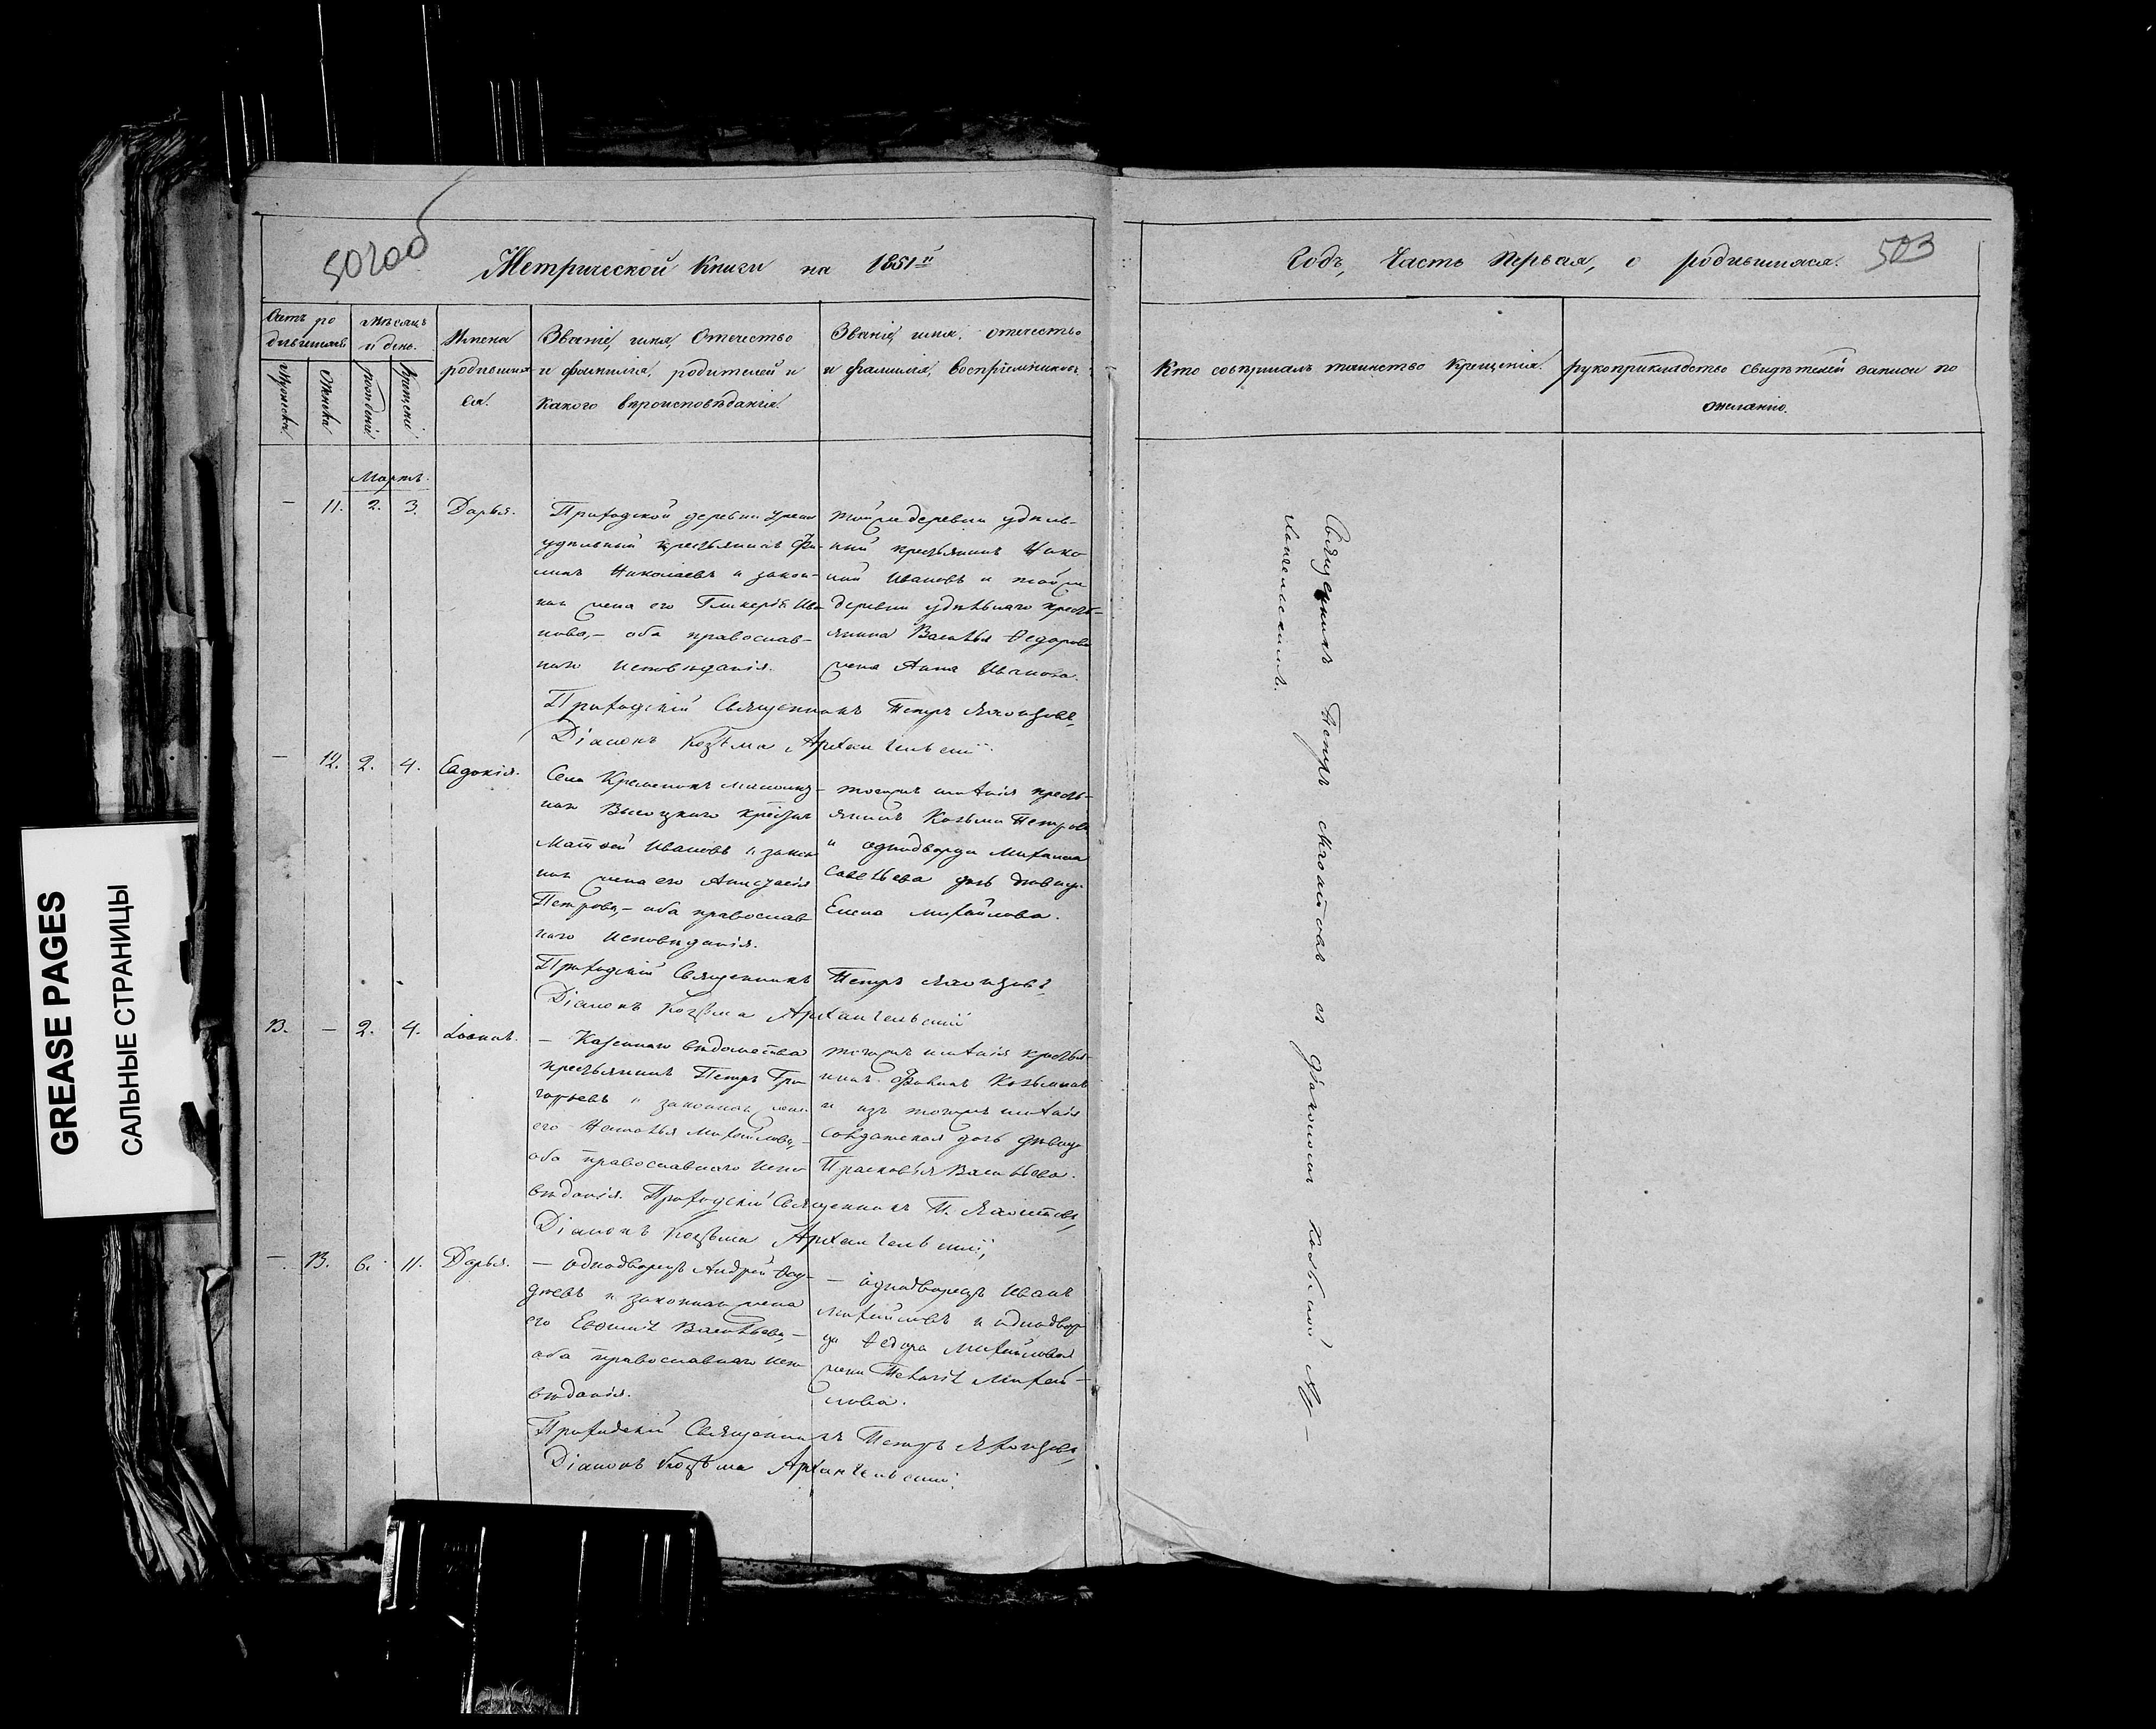 502об
Метрической Книги на 1851й
Годъ, Часть Первая, о родившихся.
503
Счетъ ро
дившихся
Мужеска
Женска
Мѣсяцъ
и день.
рожденія
Крещенія
Имена
родивших
ся.
Званіе, имя, Отечество
и фамилія, родителей и
какого вѣроисповѣданія.
Званіе, имя, отечество
и фамилія, воспріемниковъ
Кто совершалъ таинство Крещенія.
рукоприкладство свидѣтелей записи по
желанію.
Мартъ.
— 11. 2. 3. Дарья.
Приходской деревни
удельный крестьянинъ Фи-
липъ Николаевъ и закон-
ная жена его Гликерія Ива
нова,— оба православ-
наго исповѣданія.
тойже деревни удѣль-
ный крестьянинъ Нико
лай Ивановъ и тойже
деревни удѣльнаго кресть-
янина Василья Федорова
жена Анна Иванова.
Приходскій Священникъ Петръ
Діаконъ Козьма Архангельскій.
— 12. 2. 4. Евдокія.
Села
Высоцкаго крестьян
Матвей Ивановъ и закон
ная жена его Анастасія
Петрова,— оба православ
наго исповѣданія.
тогожъ имѣнія кресть-
янинъ Козьма Петровъ
и однодворца Михаила
Савельева дочь девица
Елена Михайлова.
Приходскій Священникъ Петръ
Діаконъ Козьма Архангельскій
13. — 2. 4. Іоаннъ.
— Казеннаго вѣдомства
крестьянинъ Петръ Гри
горьевъ и законная жена
его Наталья Михайлова,—
оба православнаго испо
вѣданія. Приходскій Священникъ П.
тогожъ имѣнія крестья-
нинъ Козьминъ
и изъ тогожъ имѣнія
солдатская дочь дѣвица
Прасковья Васильева.
Діаконъ Козьма Архангельскій,
—. 13. 6. 11. Дарья.
— однодворецъ Андрей
и законная жена
его Евфимія Васильева,—
оба православнаго испо
вѣданія.
— однодворецъ Иванъ
Михайловъ и однодвор
ца Федора Михайлова
жена Пелагія Михай-
лова.
Приходскій Священникъ Петръ
Діаконъ Козьма Архангельскій.
Священникъ Петръ съ діакономъ Козьмой Ар-
хангельскимъ.
GREASE PAGES
САЛЬНЫЕ СТРАНИЦЫ